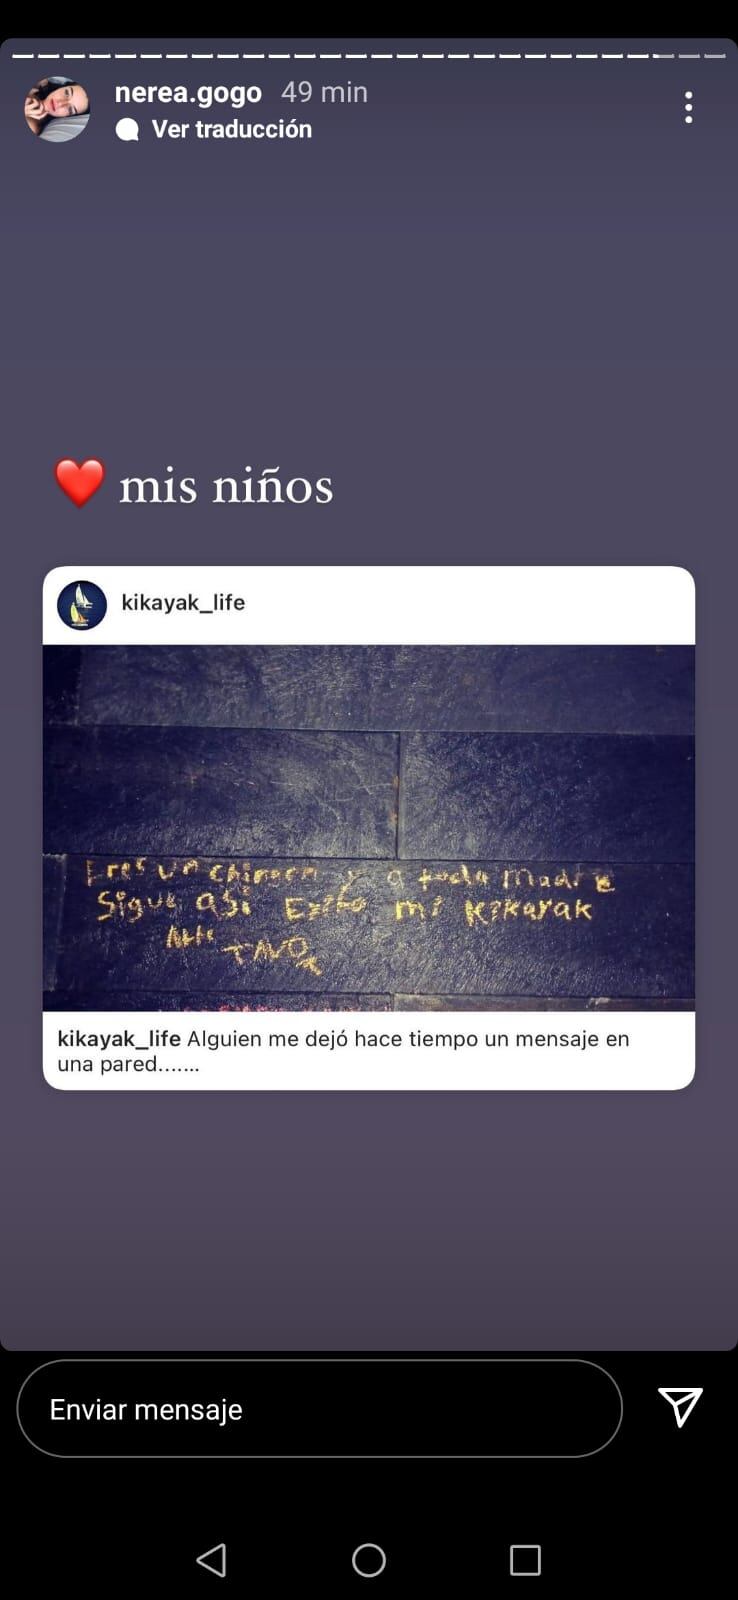 nerea.gogo 49 min
Ver traducción
mis niños
kikayak_life
Eres un chingon y a toda madre
Sigue asi Exito mi Kikayak
Atte
TAVO
kikayak_life Alguien me dejó hace tiempo un mensaje en
una pared.......
Enviar mensaje